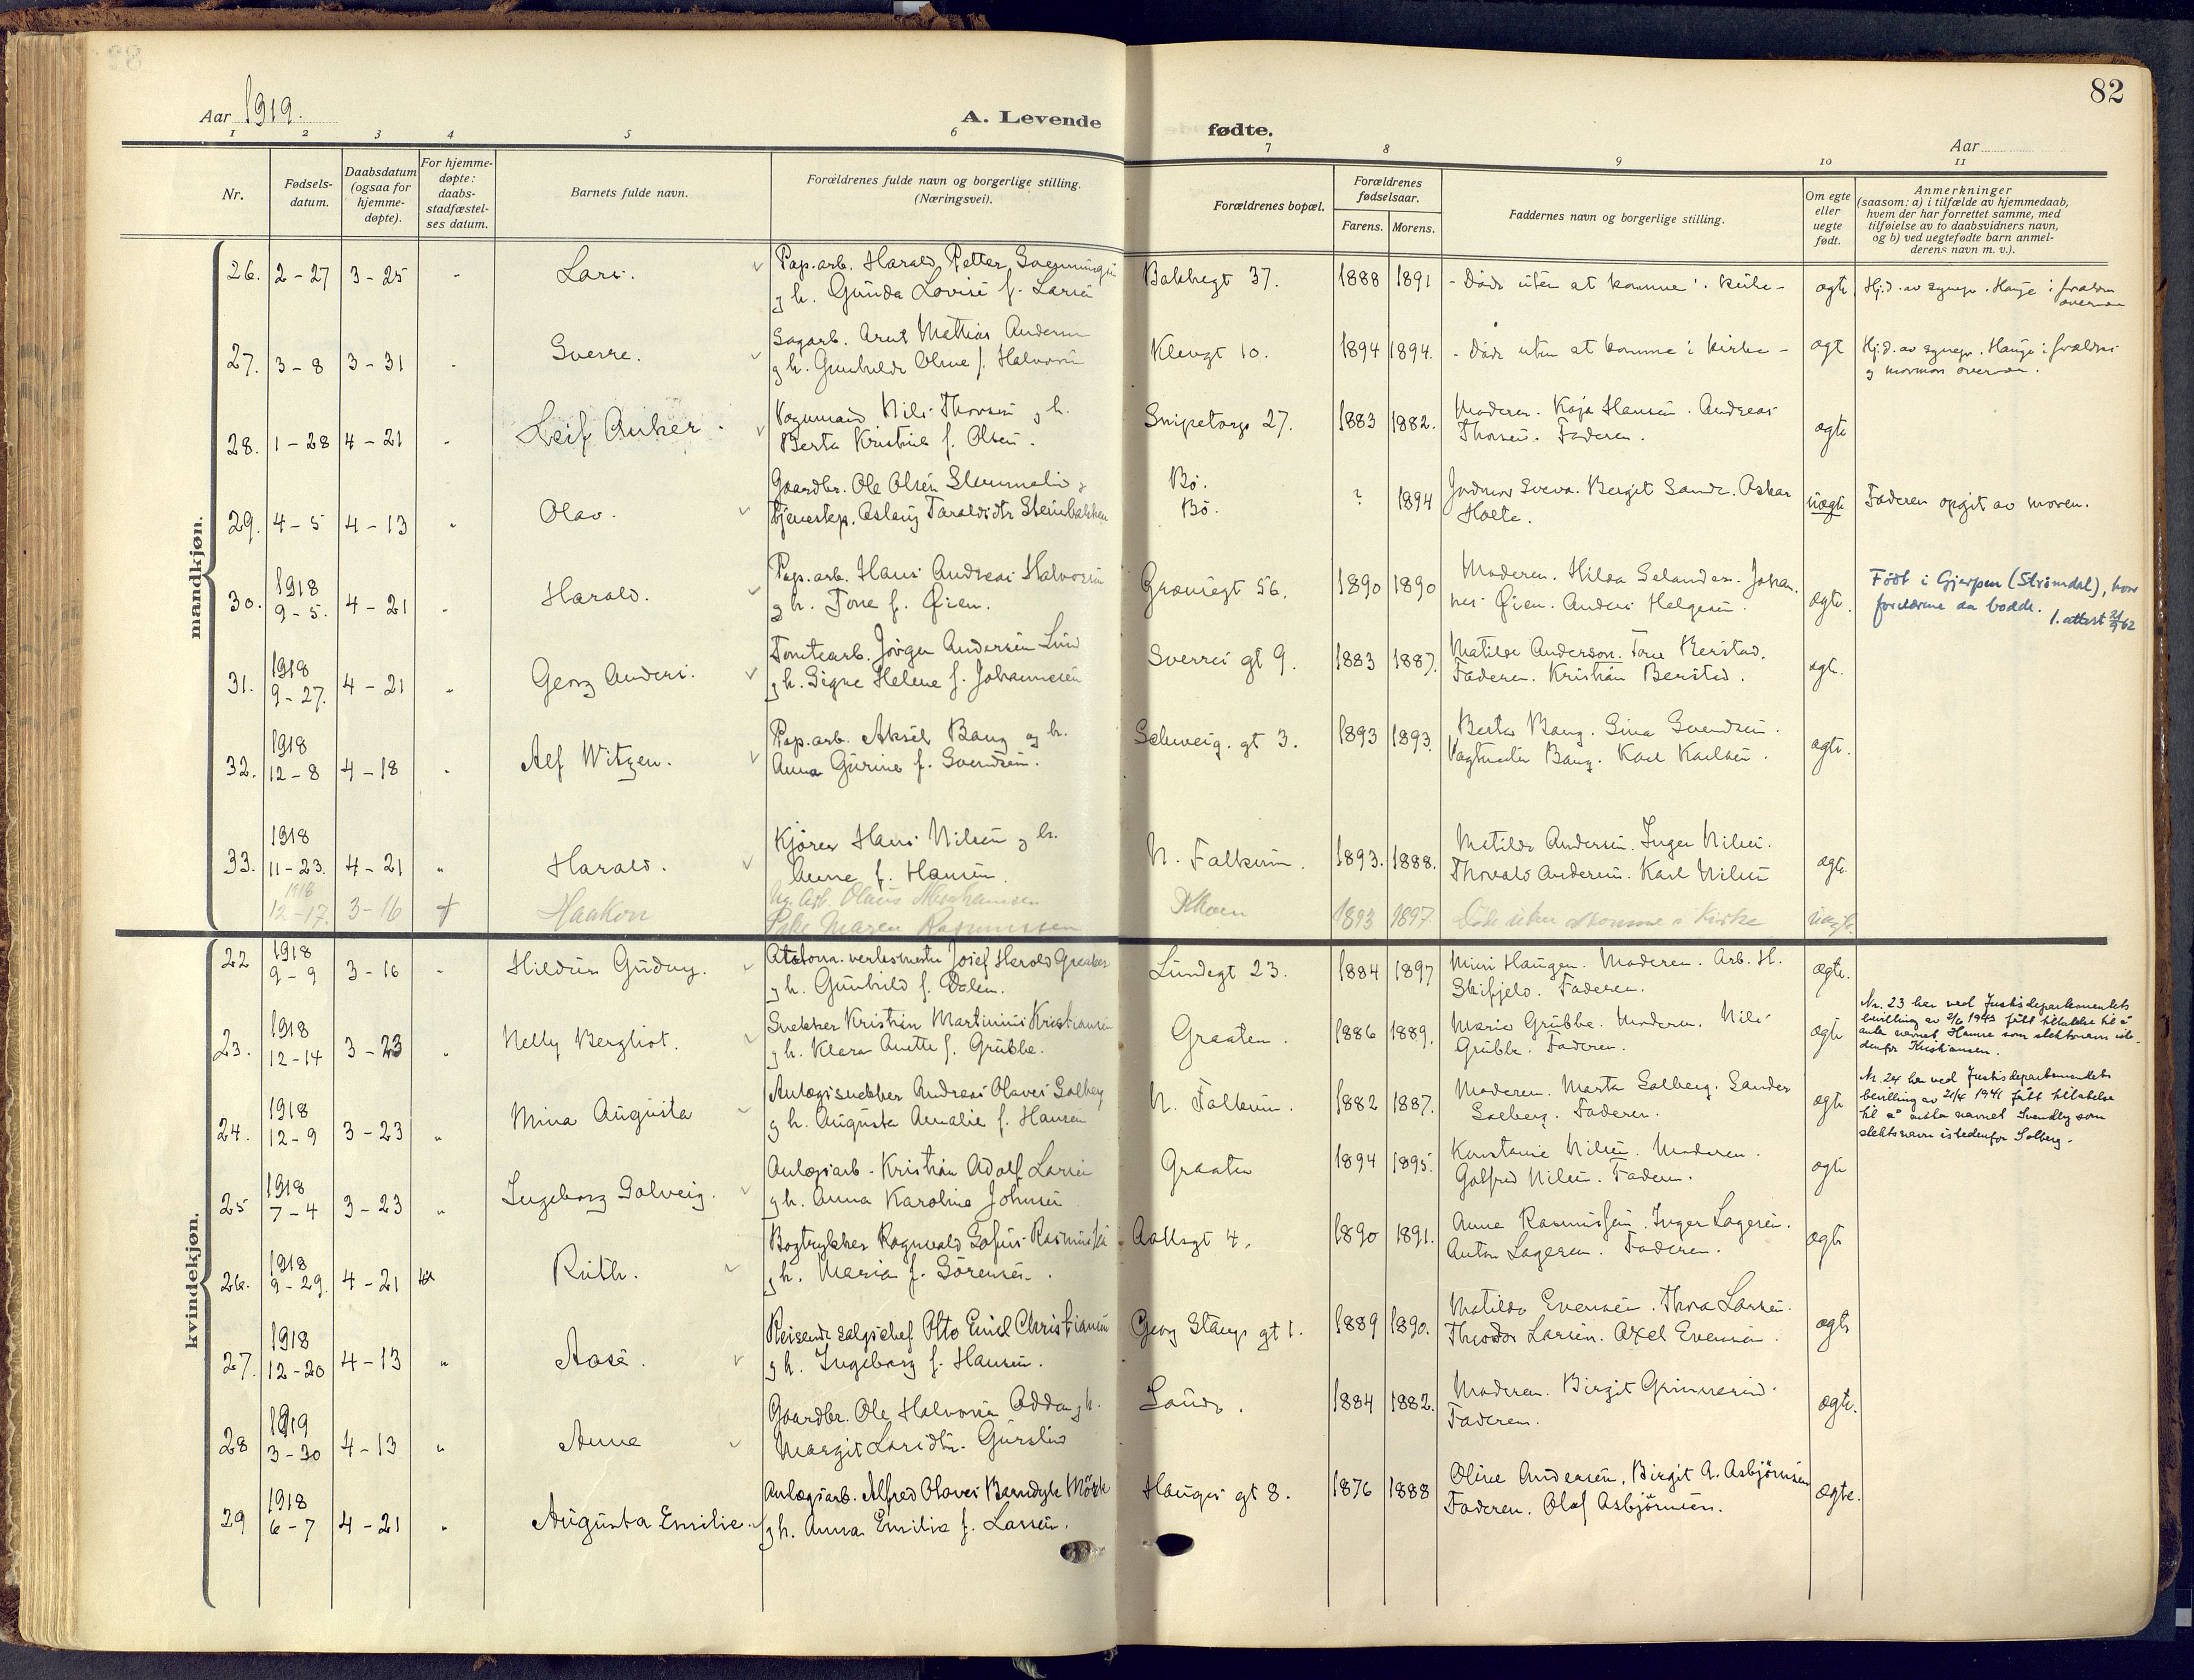 82
Aar 1919.
A. Levende
fødte.
Aar
1 2 3 4 5 6 7 8 9 10 11
Nr.
Fødsels-
datum.
Daabsdatum
(ogsaa for
hjemme-
døpte).
For hjemme-
døpte:
daabs-
stadfæstel-
ses datum.
Barnets fulde navn.
Forældrenes fulde navn og borgerlige stilling.
(Næringsvei).
Forældrenes bopæl.
Forældrenes
fødselsaar.
Farens. Morens.
Faddernes navn og borgerlige stilling.
Om egte
eller
uegte
født.
Anmerkninger
(saasom: a) i tilfælde av hjemmedaab,
hvem der har forrettet samme, med
tilføielse av to daabsvidners navn,
og b) ved uegtefødte barn anmel-
derens navn m. v.).
mandkjøn.
26. 2-27 3-25 " Lars.
Pap.arb. Harald Petter
g h. Gunda Lovise f. Larsen
1888 1891 - Døde uten at komme i kirke - ægte
27. 3-8 3-31 " Sverre.
Sagarb. Arnt Mathias Andersen
g h. Gunhilde Oline f. Halvorsen
Klevgt 10. 1894 1894. - Døde uten at komme i kirke - ægt
28. 1-28 4-21 " Leif Anker.
Vognmand Nils Thorsen g h.
Berta Kristine f. Olsen.
Snipetorp 27. 1883 1882.
Moderen. Kaja Hansen. Andreas
Thorsen. Faderen.
ægte
29. 4-5 4-13 " Olav.
Gaardbr. Ole Olsen
tjenestep. Aslaug
Bø.
Bø.
? 1894
Holte.
uægte
Faderen opgit av moren.
30. 1918
9-5. 4-21 " Harald.
Pap.arb. Hans Andreas Halvorsen
g h. Tone f. Øien.
56. 1890 1890
Moderen. Hilda Selander. Johan-
nes Øien. Anders Helgesen.
ægte.
Født i Gjerpen (Strømdal), hvor
foreldrene da bodde.
1. attest 21/9 62
31. 1918
9-27. 4-21 " Georg Anders.
Tomtearb. Jørgen Andersen Lund
g h. Signe Helene f. Johannesen
Sverres gt 9. 1883 1887.
Matilde Anderson. Tone Berstad.
Faderen. Kristian Berstad.
ægt.
32. 1918
12-8 4-18 " Alf Witzen.
Pap.arb. Aksel Bang og h.
Anna Gurine f. Svendsen.
Schweig. gt 3. 1893 1893.
Berta Bang. Gina Svendsen.
Bang. Karl Karlsen.
ægte.
33. 1918
11-23. 4-21 " Harald.
Kjører Hans Nilsen g h.
Anne f. Hansen.
N. Falkum. 1893. 1888.
Matilde Andersen. Inger Nilsen.
Thorvald Andersen. Karl Nilsen
ægte
1918
12-17. 3-16 † Haakon
Olaus
Pike Maren Rasmussen
1893 1897. Døde uten at komme i Kirke uægt.
kvindekjøn.
22 1918
9-9 3-16 " Hildur Gudny.
Josef Herold Greaker
g h. Gunhild f. Dalen.
Lundegt 23. 1884 1897
Mimi Haugen. Moderen. Arb. H.
Skifjeld. Faderen.
ægte.
23. 1918
12-14 3-23 " Nelly Bergliot.
Snekker Kristian Martinius Kristiansen
g h. Klara Anette f. Grubbe.
Graaten. 1886 1889.
Marie Grubbe. Moderen. Nils
Grubbe. Faderen.
ægte
Nr. 23 har ved Justisdepartementets
bevilling av 2/6 1943 fått tillatelse til å
anta navnet Hamre som slektsnavn iste-
denfor Kristiansen.
24. 1918
12-9 3-23 " Mina Augusta
Anlægssnekker Andreas Olaves Solberg
g h. Augusta Amalie f. Hansen
N. Falkum. 1882 1887.
Moderen. Marta Solberg. Sander
Solberg. Faderen.
ægte
Nr. 24 har ved Justisdepartementets
bevilling av 21/4 1941 fått tillatelse
til å anta navnet Svendby som
slektsnavn istedenfor Solberg.
25 1918
7-4 3-23 " Ingeborg Solveig.
Anlægsarb. Kristian Adolf Larsen
g h. Anna Karoline Johnsen
Graaten 1894 1895.
Konstanse Nilsen. Moderen.
Golfred Nilsen. Faderen.
ægte
26. 1918
9-29. 4-21 Ruth.
Bogtrykker Ragnvald Sofus Rasmussen
g h. Maria f. Sørensen.
Aallsgt 4. 1890 1891.
Anne Rasmussen. Inger Lagesen.
Anton Lagesen. Faderen.
ægte
27. 1918
12-20 4-13 " Aase.
Reisende salgschef Otto Emil Christiansen
g h. Ingeborg f. Hansen.
Georg Stangs gt 1. 1889 1890.
Matilde Evensen. Thora Larsen.
Theodor Larsen. Axel Evensen.
ægte
28 1919
3-30 4-13 " Anne
Gaardbr. Ole Halvorsen g h.
Margit Larsdtr.
1884 1882.
Moderen. Birgit
Faderen.
ægte.
29 1918
6-7 4-21 " Augusta Emilie.
Anlægsarb. Alfred Olaves Barndyk Mörk
g h. Anna Emilie f. Larsen.
Hauges gt 8. 1876 1888
Oline Andersen, Birgit A. Asbjørnsen
Faderen. Olaf Asbjørnsen.
ægte.